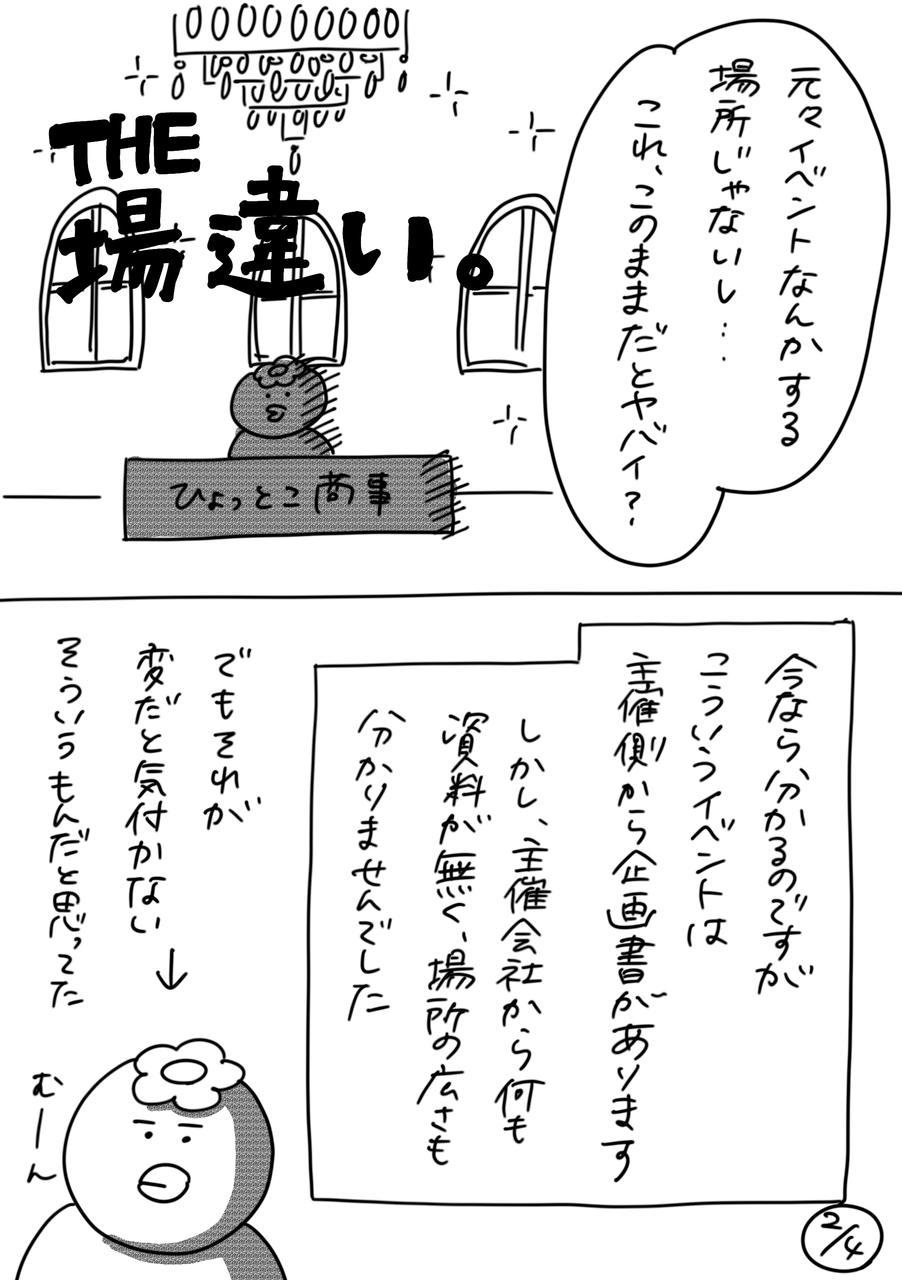 元々イベントなんかする
場所じゃないし…
これ、このままだとヤバイ?
THE
場違い。
ひょっとこ商事
今なら分かるのですが
こういうイベントは
主催側から企画書があります
しかし、主催会社から何も
資料が無く、場所の広さも
分かりませんでした
でもそれが
変だと気付かない
↓
そういうもんだと思ってた
むーん
2/4